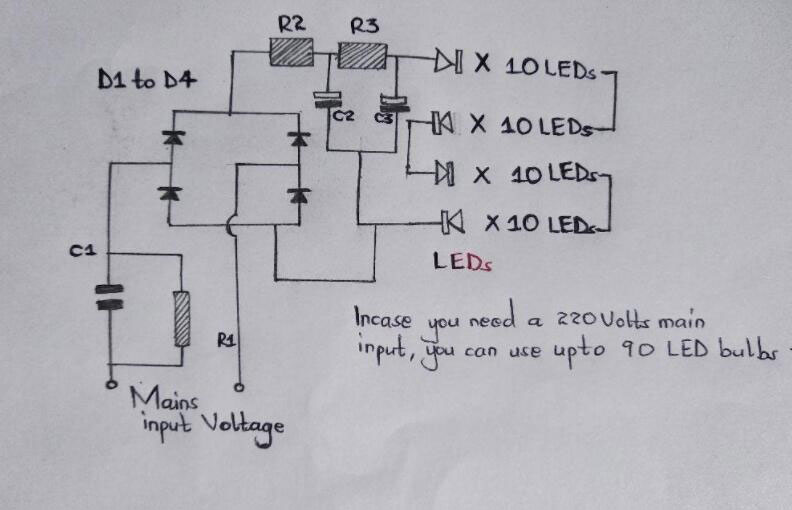 R2 R3
D1 to D4
X 10 LEDs
C2 C3
X 10 LEDs
X 10 LEDs
X 10 LEDs
C1
LEDs
Incase you need a 220 Volts main
input, you can use upto 90 LED bulbs.
R1
Mains
input Voltage